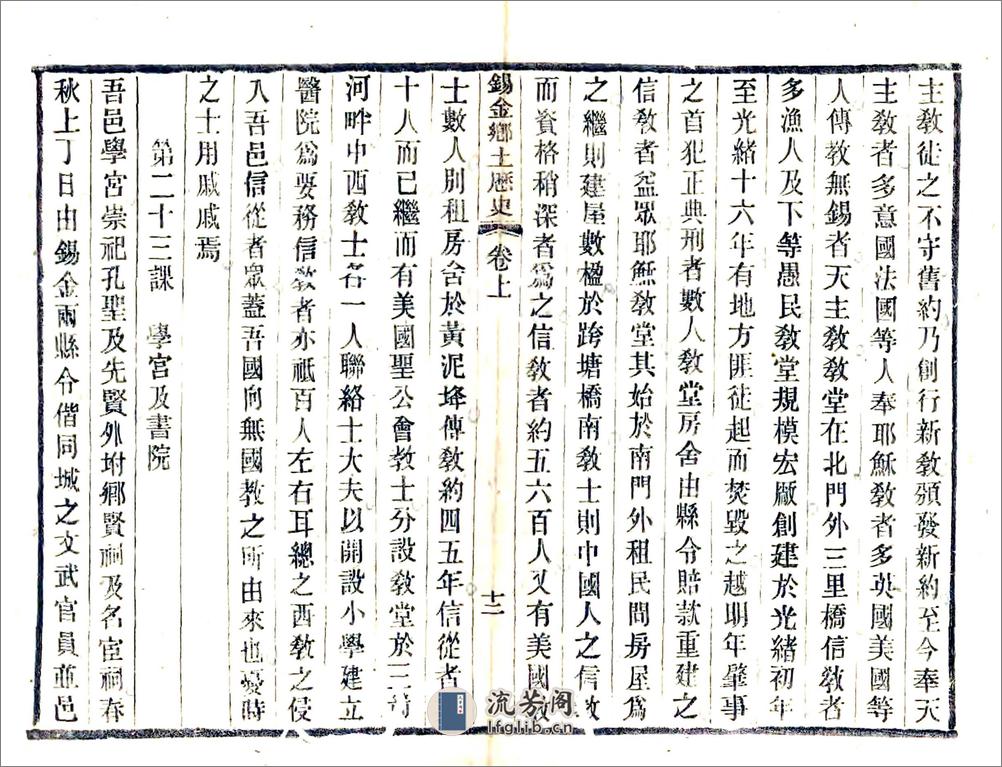 主教徒之不守舊約乃創行新教頒發新約至今奉天
主教者多意國法國等人奉耶穌教者多英國美國等
人傳教無錫者天主教教堂在北門外三里橋信教者
多漁人及下等愚民教堂規模宏厰創建於光緒初年
至光緒十六年有地方匪徒起而焚毀之越明年肇事
之首犯正典刑者數人教堂房舍由縣令賠款重建之
信教者益眾耶穌教堂其始於南門外租民間房屋爲
之繼則建屋數楹於跨塘橋南教士則中國人之信教
而資格稍深者爲之信教者約五六百人又有美國教
錫金鄉土歷史 卷上 十二
士數人別租房舍於黃泥埄傳教約四五年信從者
十人而已繼而有美國聖公會教士分設教堂於三
河畔中西教士各一人聯絡士大夫以開設小學建立
醫院爲要務信教者亦祗百人左右耳總之西教之侵
入吾邑信從者眾蓋吾國向無國教之所由來也憂時
之士用戚戚焉
第二十三課 學宮及書院
吾邑學宮崇祀孔聖及先賢外坿鄉賢祠及名宦祠春
秋上丁日由錫金兩縣令偕同城之文武官員並邑
流芳阁
lfglib.cn